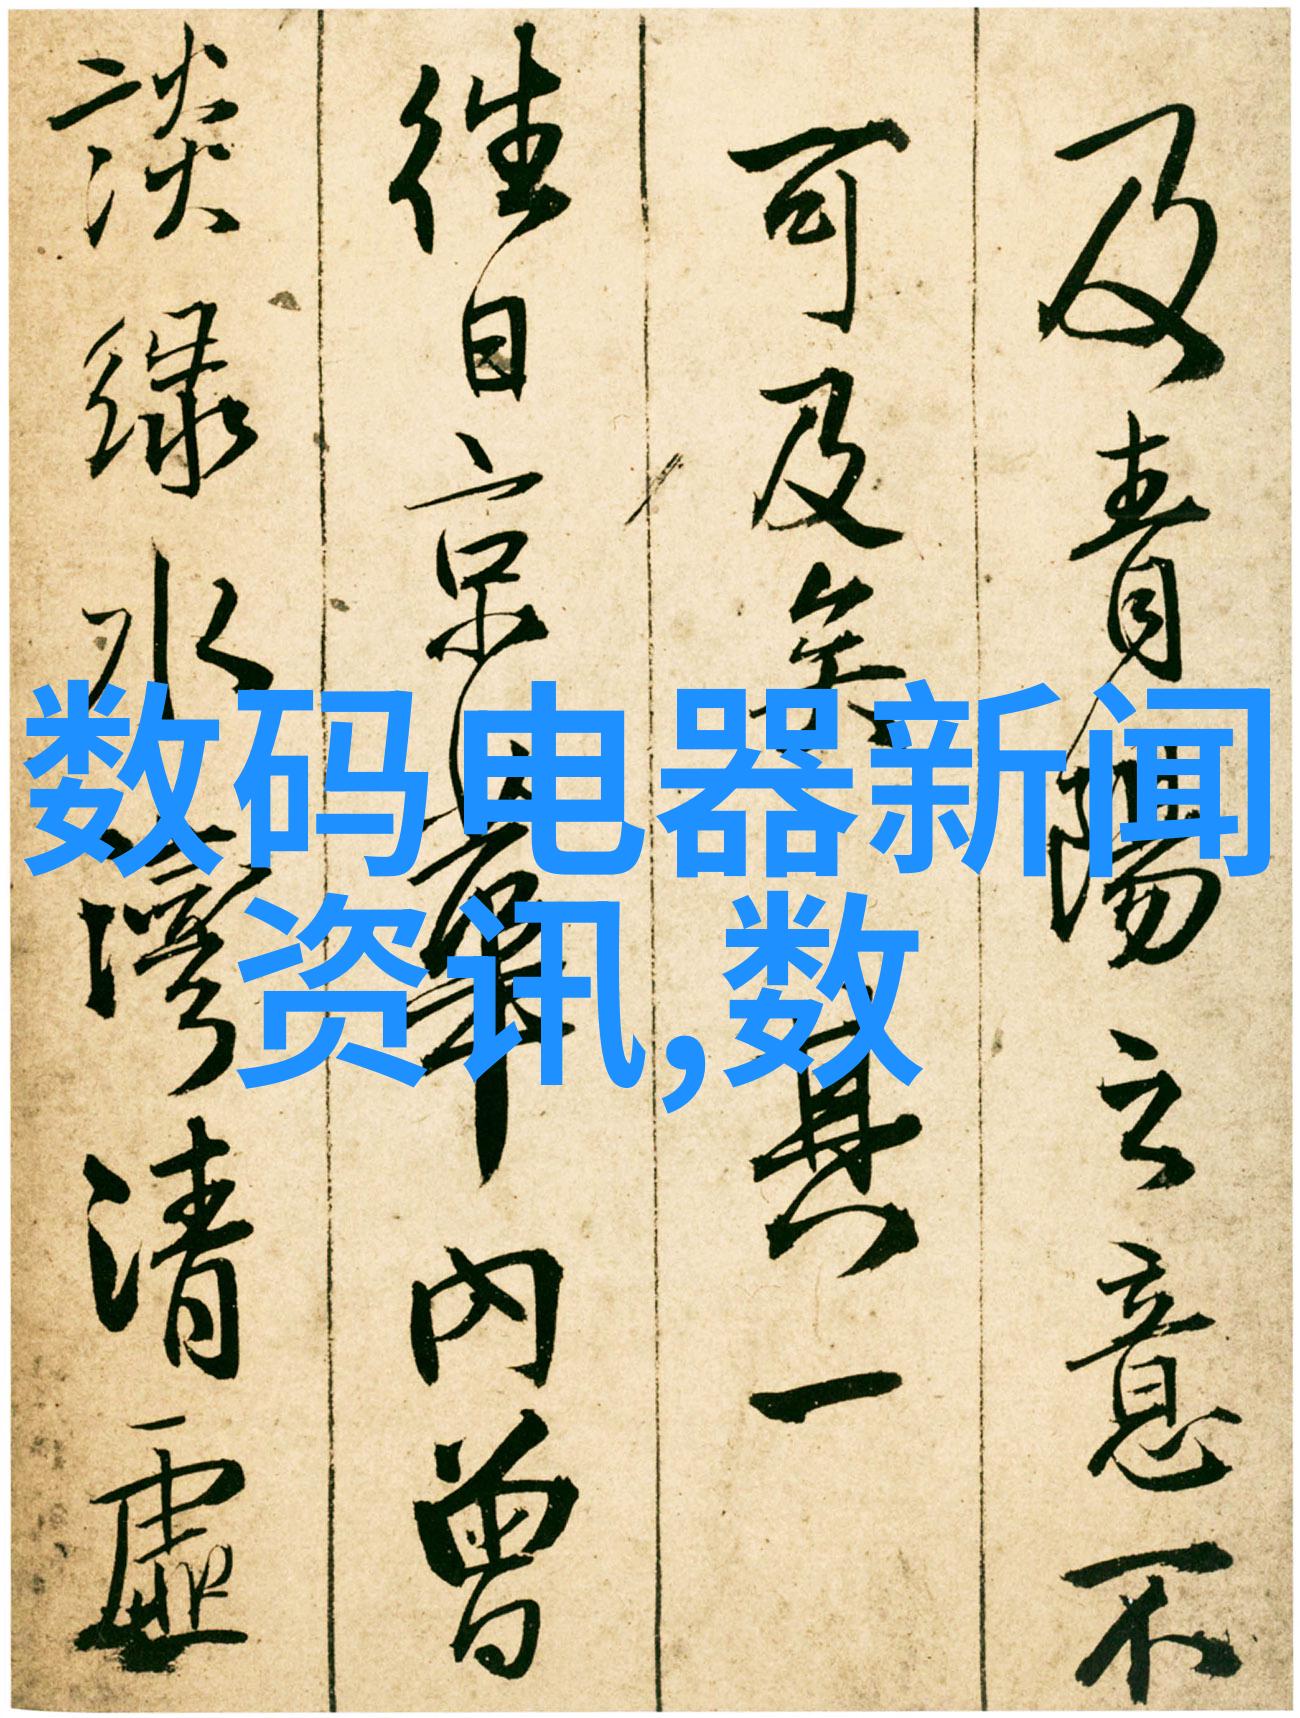 及青陽之意不
可及矣其一
往日京華内曾
談緑水灣清虛
数码电器新闻
资讯,数